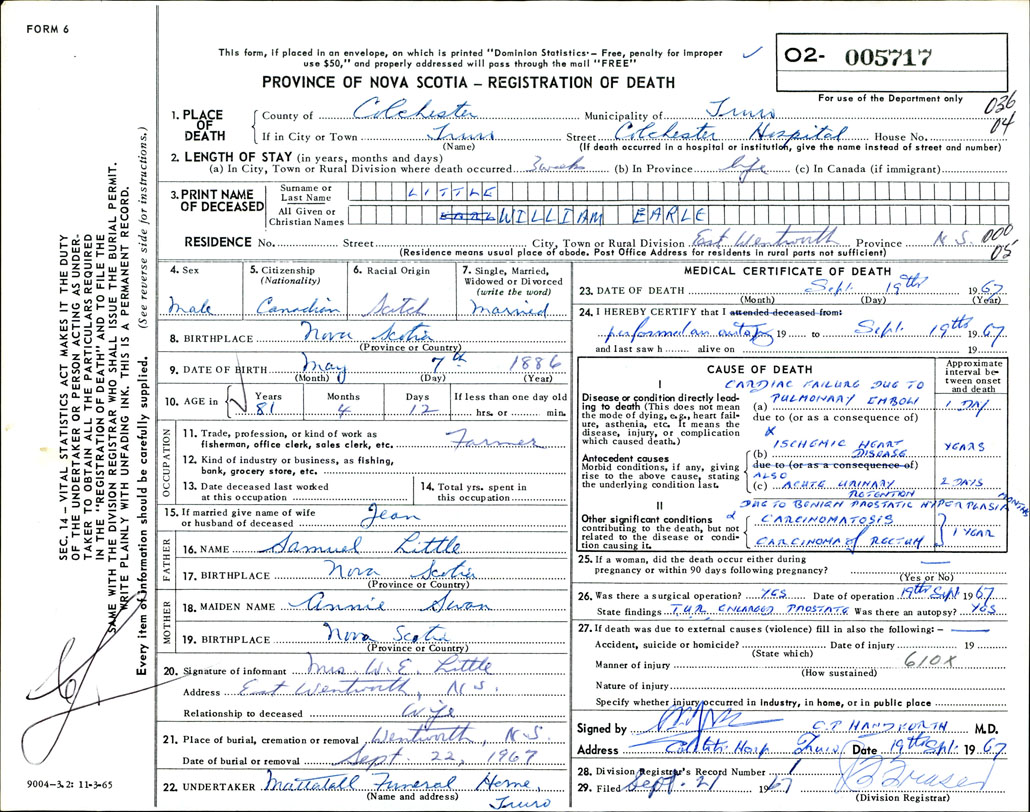 FORM 6
This form, if placed in an envelope, on which is printed "Dominion Statistics - Free, penalty for improper
use $50," and properly addressed will pass through the mail "FREE"
02- 005717
For use of the Department only
036
04
PROVINCE OF NOVA SCOTIA – REGISTRATION OF DEATH
1. PLACE OF DEATH
County of Colchester Municipality of Truro
If in City or Town Truro Street Colchester Hospital House No.
(Name) (If death occurred in a hospital or institution, give the name instead of street and number)
2. LENGTH OF STAY (in years, months and days)
(a) In City, Town or Rural Division where death occurred 3 week (b) In Province life (c) In Canada (if immigrant)
3. PRINT NAME OF DECEASED
Surname or Last Name LITTLE
All Given or Christian Names EARL WILLIAM EARLE
RESIDENCE No. Street City, Town or Rural Division East Wentworth Province N.S.
000
05
(Residence means usual place of abode. Post Office Address for residents in rural parts not sufficient)
4. Sex
Male
5. Citizenship
(Nationality)
Canadian
6. Racial Origin
Scotch
7. Single, Married,
Widowed or Divorced
(write the word)
Married
8. BIRTHPLACE Nova Scotia
(Province or Country)
9. DATE OF BIRTH May 7th 1886
(Month) (Day) (Year)
10. AGE in
Years Months Days If less than one day old
81 4 12 hrs. or min.
OCCUPATION
11. Trade, profession, or kind of work as
fisherman, office clerk, sales clerk, etc. Farmer
12. Kind of industry or business, as fishing,
bank, grocery store, etc.
13. Date deceased last worked
at this occupation
14. Total yrs. spent in
this occupation
15. If married give name of wife
or husband of deceased Jean
FATHER
16. NAME Samuel Little
17. BIRTHPLACE Nova Scotia
(Province or Country)
MOTHER
18. MAIDEN NAME Annie Swan
19. BIRTHPLACE Nova Scotia
(Province or Country)
20. Signature of informant Mrs. W.E. Little
Address East Wentworth, N.S.
Relationship to deceased Wife
21. Place of burial, cremation or removal Wentworth, N.S.
Date of burial or removal Sept 22, 1967
22. UNDERTAKER Mattatall Funeral Home,
(Name and address) Truro
MEDICAL CERTIFICATE OF DEATH
23. DATE OF DEATH Sept. 19th 1967
(Month) (Day) (Year)
24. I HEREBY CERTIFY that I attended deceased from:
performed an autopsy 19 to Sept. 19th 1967
and last saw h alive on 19
CAUSE OF DEATH
Approximate
interval be-
tween onset
and death
I
Disease or condition directly lead-
ing to death (This does not mean
the mode of dying, e.g., heart fail-
ure, asthenia, etc. It means the
disease, injury, or complication
which caused death.)
CARDIAC FAILURE DUE TO
(a) PULMONARY EMBOLI 1 DAY
due to (or as a consequence of)
&
Antecedent causes
Morbid conditions, if any, giving
rise to the above cause, stating
the underlying condition last.
(b) ISCHEMIC HEART DISEASE YEARS
due to (or as a consequence of)
ALSO
(c) ACUTE URINARY RETENTION 2 DAYS
DUE TO BENIGN PROSTATIC HYPERPLASIA MONTHS
II
Other significant conditions
contributing to the death, but not
related to the disease or condi-
tion causing it.
CARCINOMATOSIS
CARCINOMA of RECTUM 1 YEAR
25. If a woman, did the death occur either during
pregnancy or within 90 days following pregnancy?
(Yes or No)
26. Was there a surgical operation? YES Date of operation 19th Sept 1967
State findings T.U.R. ENLARGED PROSTATE Was there an autopsy? YES
27. If death was due to external causes (violence) fill in also the following: –
Accident, suicide or homicide? Date of injury 19
(State which)
Manner of injury 610X
(How sustained)
Nature of injury
Specify whether injury occurred in Industry, in home, or in public place
Signed by C.P. HANDFORTH M.D.
Address Hosp Truro Date 19th Sept. 1967
28. Division Registrar's Record Number 1
29. Filed Sept. 21 1967
(Division Registrar)
SEC. 14 – VITAL STATISTICS ACT MAKES IT THE DUTY
OF THE UNDERTAKER OR PERSON ACTING AS UNDER-
TAKER TO OBTAIN ALL THE PARTICULARS REQUIRED
IN THE "REGISTRATION OF DEATH" AND TO FILE THE
SAME WITH THE DIVISION REGISTRAR WHO SHALL ISSUE THE BURIAL PERMIT.
WRITE PLAINLY WITH UNFADING INK. THIS IS A PERMANENT RECORD.
Every item of information should be carefully supplied. (See reverse side for instructions.)
9004-3.2: 11-3-65